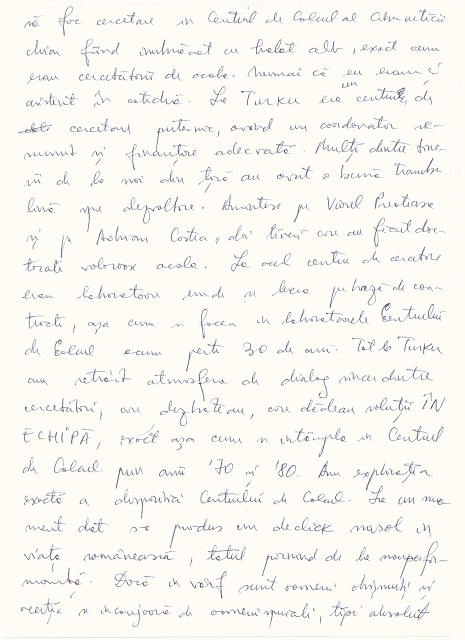 să fac cercetare în Centrul de Calcul al Ciberneticii
chiar fiind îmbrăcat cu halat alb, exact cum
erau cercetătorii de acolo. Numai că eu eram și
asistent în catedră. La Turku era un centru de
cercetare puternic, având un coordonator re-
numit și finanțare adecvată. Mulți dintre tine-
rii de la noi din țară au avut o bună trambu-
lină spre dezvoltare. Amintesc pe Viorel Preoteasa
și pe Adrian Costea, doi tineri care au făcut doc-
torate valoroase acolo. La acel centru de cercetare
erau laboratoare unde se lucra pe bază de con-
tracte, așa cum se făcea în laboratoarele Centrului
de Calcul acum peste 30 de ani. Tot la Turku
am retrăit atmosfera de dialog sincer dintre
cercetători, care dezbăteau, care dădeau soluții ÎN
ECHIPĂ, exact așa cum se întâmpla în Centrul
de Calcul prin anii '70 și '80. Am explicația
exactă a dispariției Centrului de Calcul. La un mo-
ment dat s-a produs un declick masol în
viața românească, totul pornind de la nonperfor-
manță. Dacă în vârf sunt oameni obișnuiți și
aceștia se înconjoară de oameni, tipi absolut